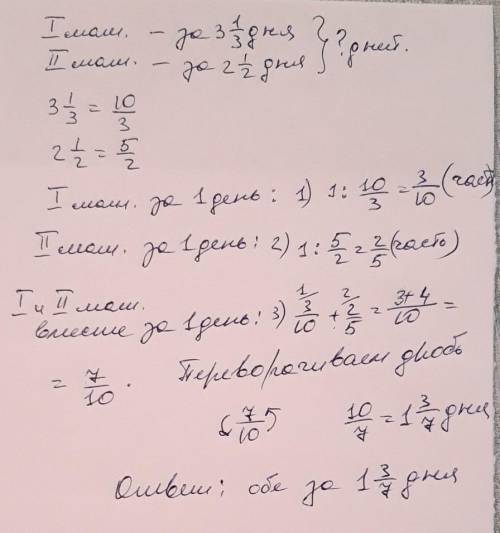 I маш. – за 3 1/3 дня } ? дней.
II маш. – за 2 1/2 дня
3 1/3 = 10/3
2 1/2 = 5/2
I маш. за 1 день: 1) 1 : 10/3 = 3/10 (часть
II маш. за 1 день: 2) 1 : 5/2 = 2/5 (часть)
I и II маш.
вместе за 1 день: 3) 3/10 + 2/5 = 3+4/10 =
= 7/10 . Переворачиваем дробь
(7/10) 10/7 = 1 3/7 дня
Ответ: обе за 1 3/7 дня